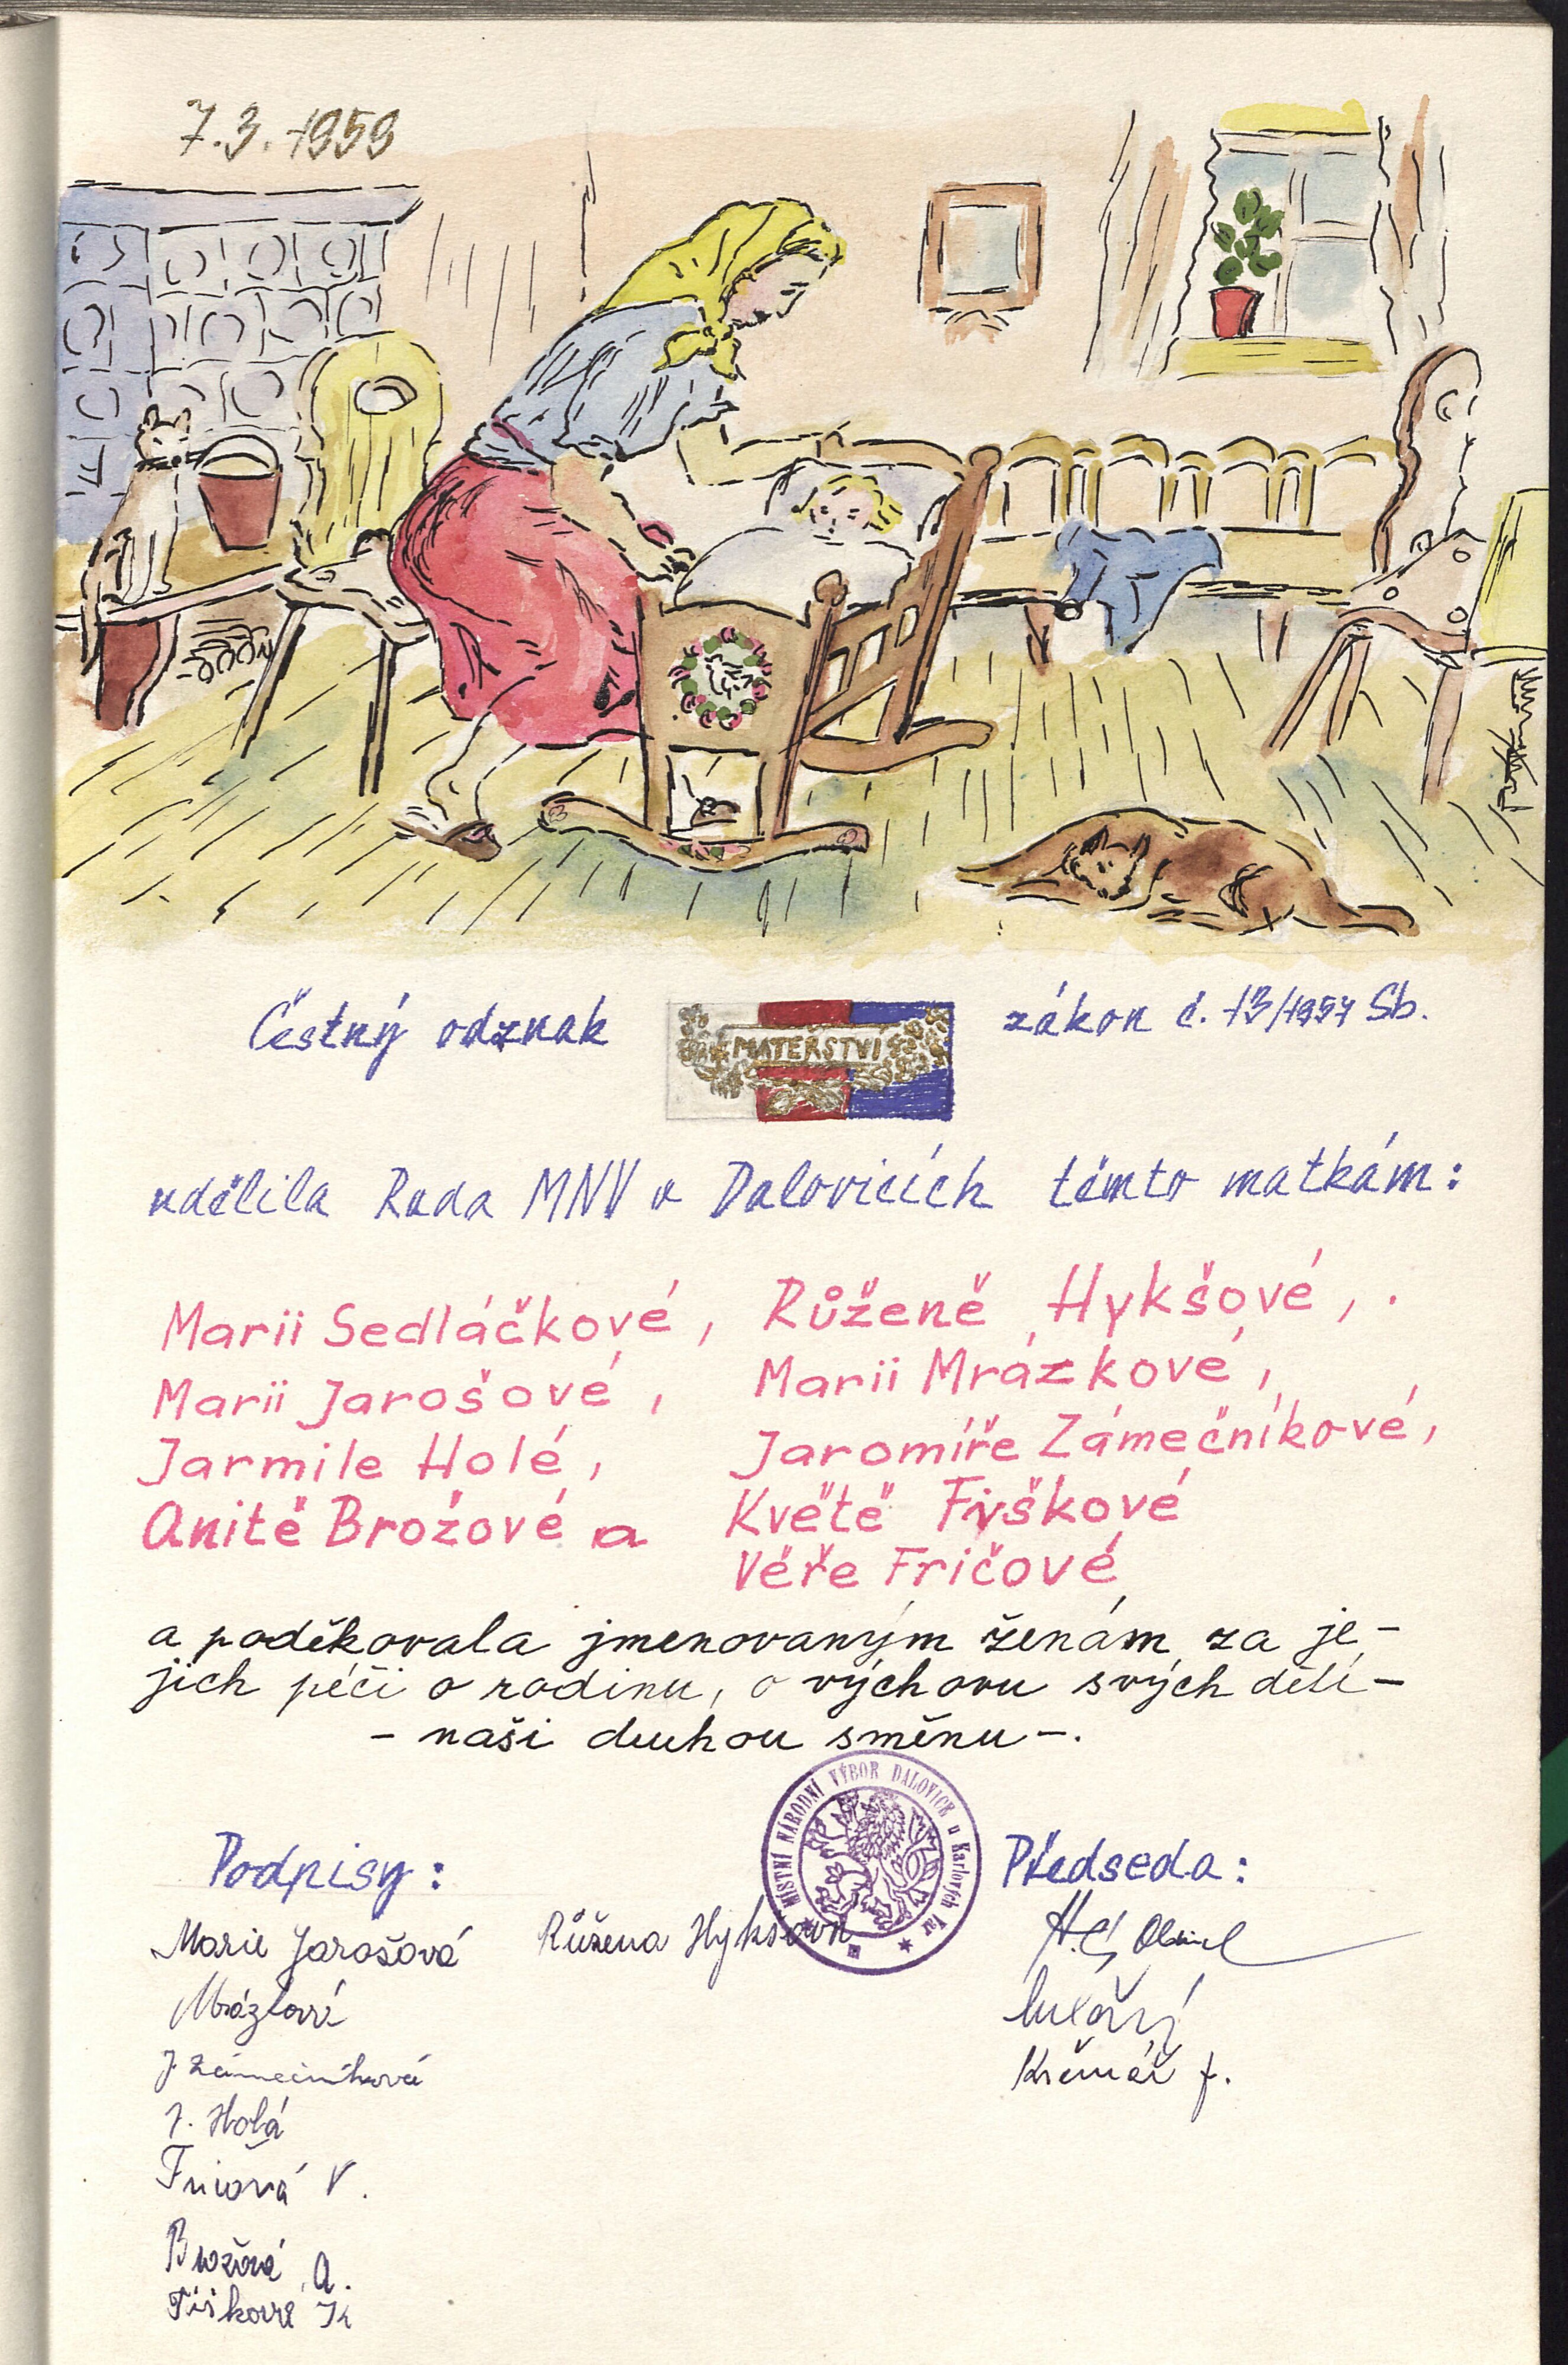 7.3.1959
Čestný odznak MATEŘSTVÍ zákon č. 13/1957 Sb.
udělila Rada MNV v Dalovicích těmto matkám:
Marii Sedláčkové, Růženě Hykšové,
Marii Jarošové, Marii Mrázkové,
Jarmile Holé, Jaromíře Zámečníkové,
Anitě Brožové a Květě Fiškové
Věře Fričové
a poděkovala jmenovaným ženám za je-
jich péči o rodinu, o výchovu svých dětí -
- naši druhou směnu -.
MÍSTNÍ NÁRODNÍ VÝBOR DALOVICE u Karlových Var
Podpisy: Předseda:
Marie Jarošová Růžena Hykšová
Mrázková
J. Zámečníková
J. Holá Krčmář J.
Fričová V.
Brožová A.
Fišková K